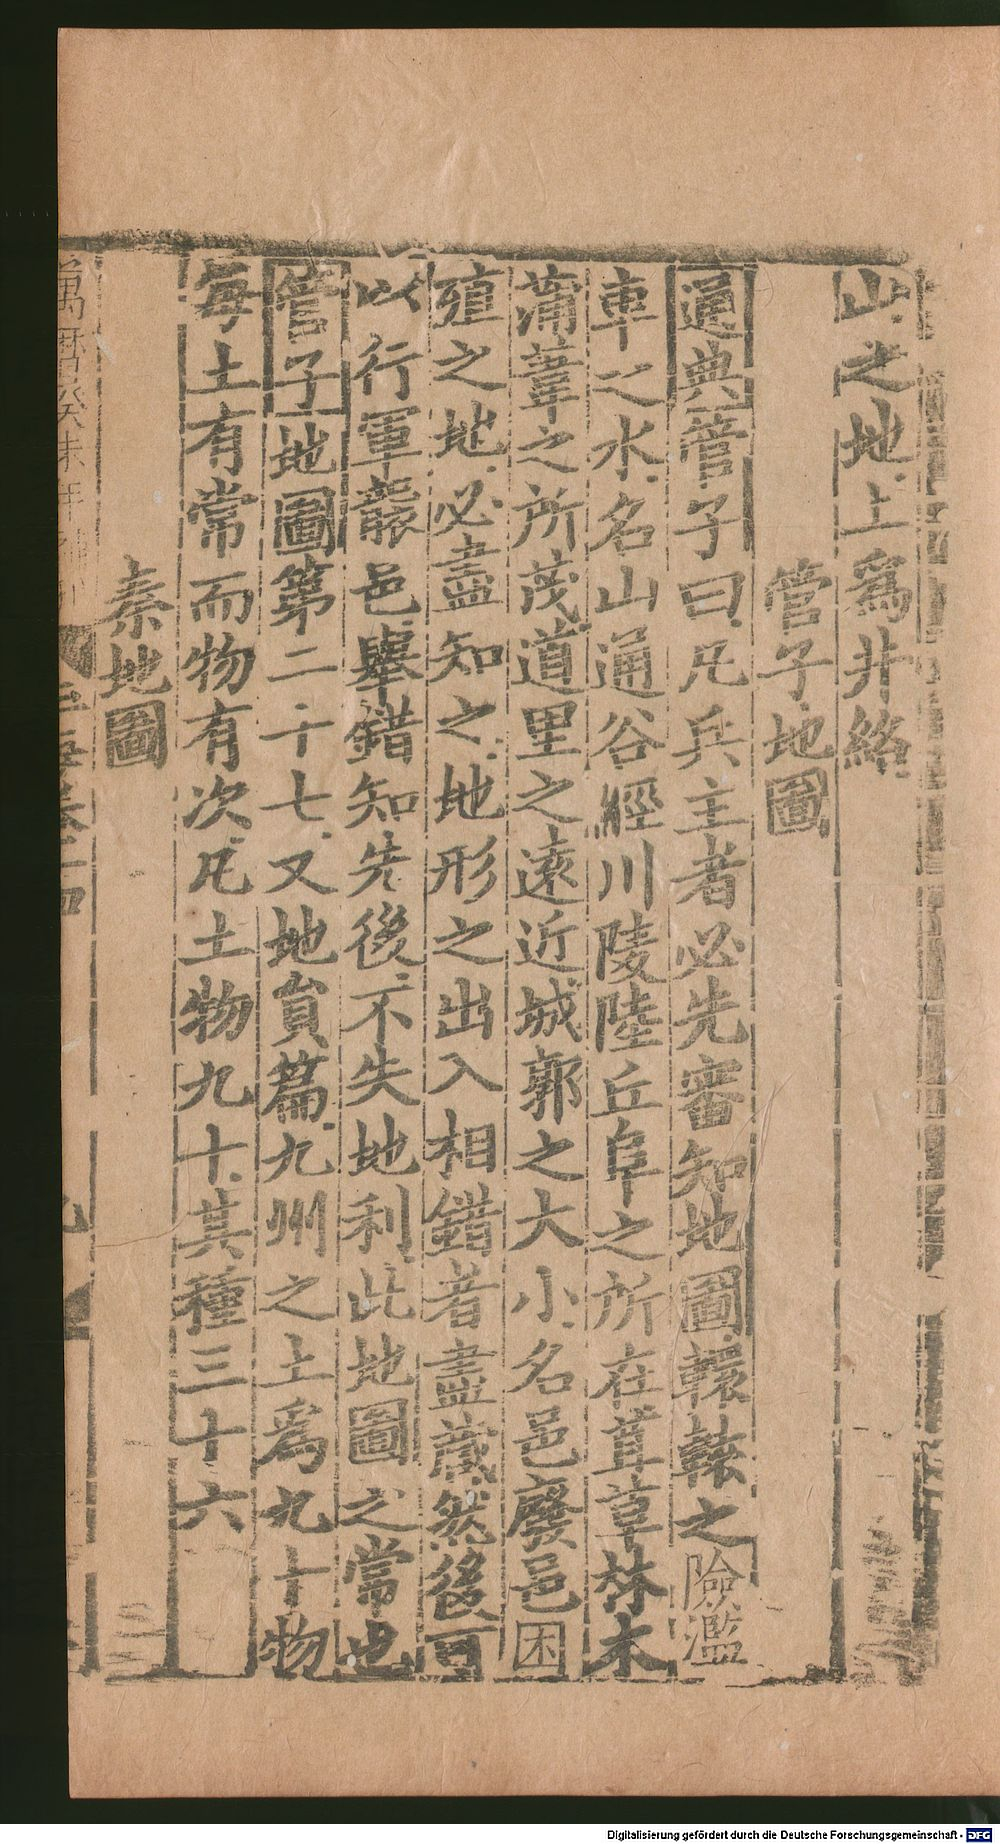 山之地上爲井絡
管子地圖
通典管子曰凡兵主者必先審知地圖轘轅之險濫
車之水名山通谷經川陵陸丘阜之所在苴草林木
蒲葦之所茂道里之遠近城郭之大小名邑廢邑困
殖之地必盡知之地形之出入相錯者盡藏然後可
以行軍襲邑舉錯知先後不失地利此地圖之常也
管子地圖第二十七又地貟篇九州之土爲九十物
每土有常而物有次凡土物九十其種三十六
秦地圖
萬曆癸未年
Digitalisierung gefördert durch die Deutsche Forschungsgemeinschaft - DFG